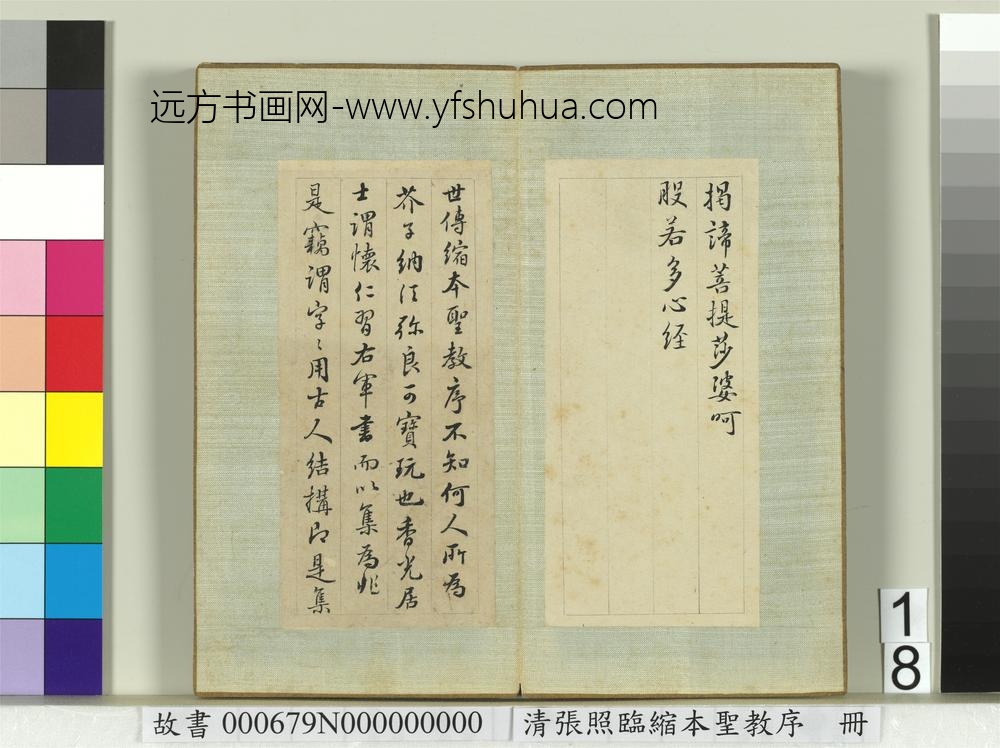 远方书画网-www.yfshuhua.com
揭諦菩提莎婆呵
般若多心経
世傳缩本聖教序不知何人所為
芥子納須弥良可寶玩也香光居
士謂懷仁習右軍書而以集為非
是竊謂字〻用古人结搆即是集
18
故書 000679N000000000 清張照臨縮本聖教序 冊